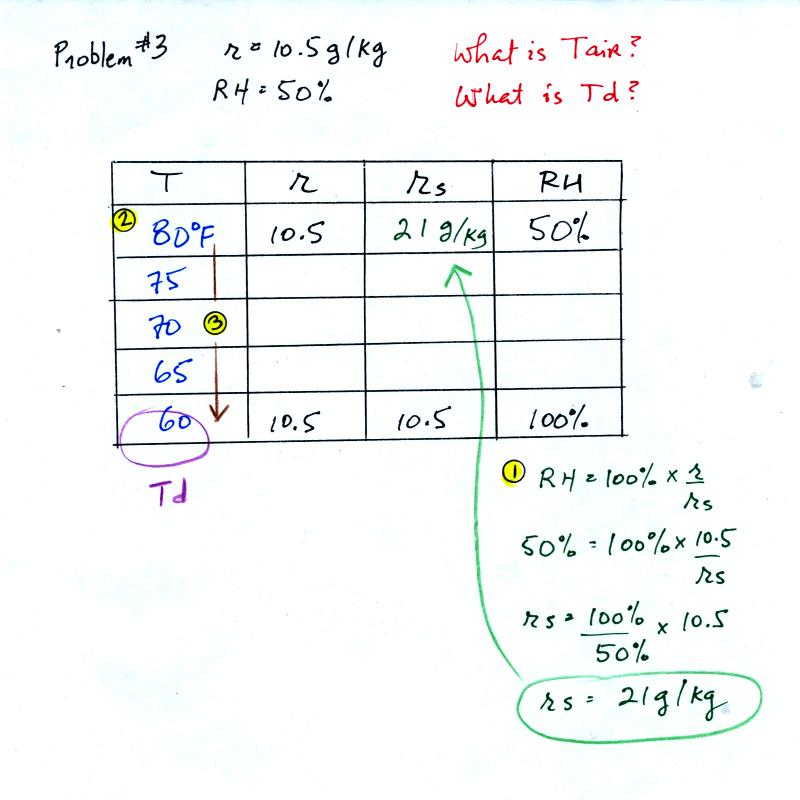 Problem #3 r = 10.5 g/kg What is Tair?
RH = 50% What is Td?
T r rs RH
② 80°F 10.5 21 g/kg 50%
75
70 ③
65
60 10.5 10.5 100%
Td
① RH = 100% × r/rs
50% = 100% × 10.5/rs
rs = 100%/50% × 10.5
rs = 21 g/kg